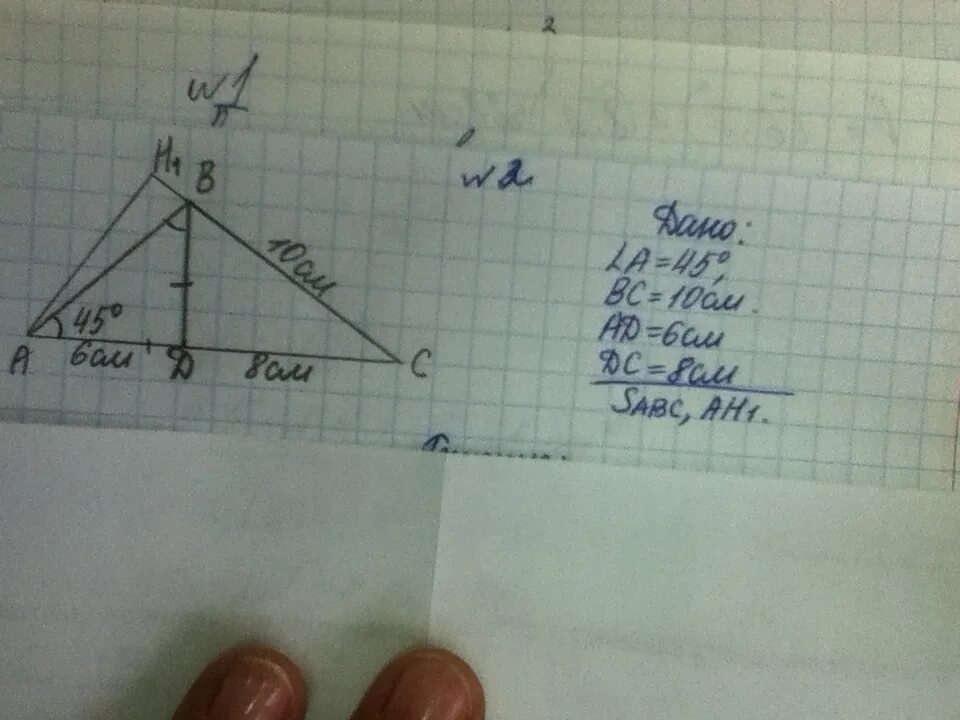 2
№1
№2
H₁
B
10см
45°
A
6см
D
8см
C
Дано:
∠A=45°,
BC=10см.
AD=6см
DC=8см
SABC, AH₁.